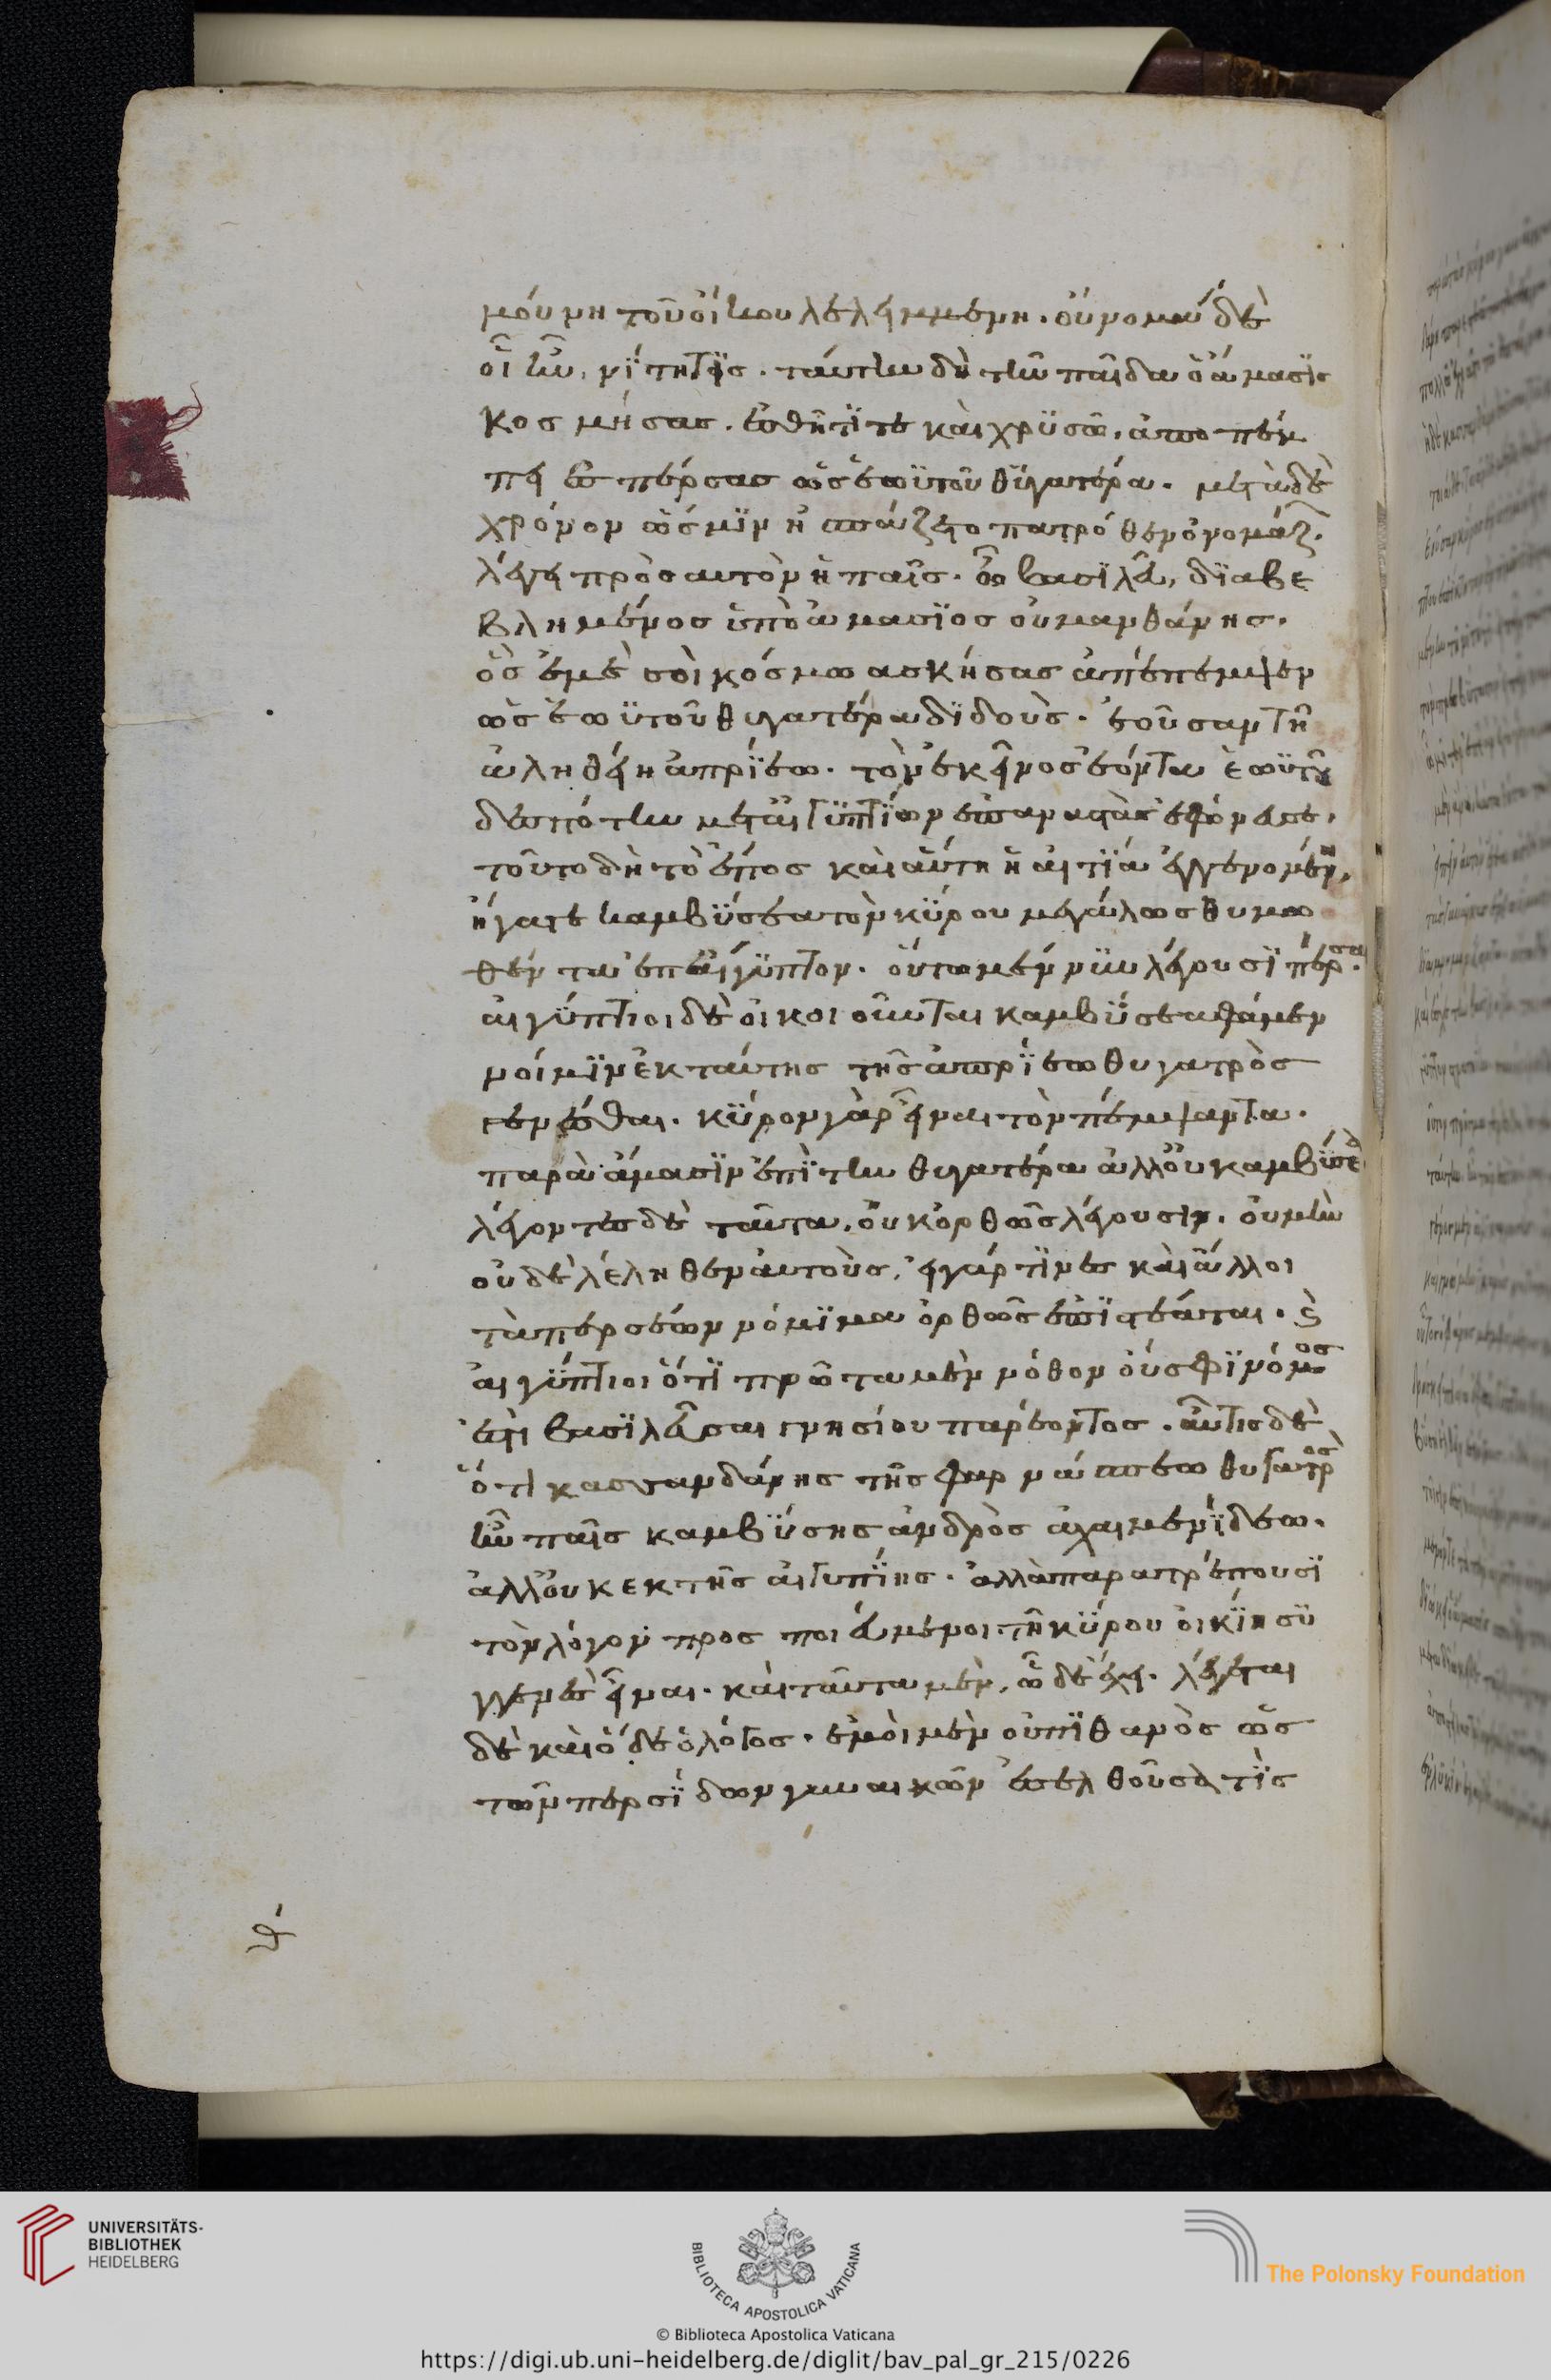 μούνη τοῦ οἴκου λελειμμένη. οὔνομα δέ
οἱ ἦν, νίτητις. ταύτην δὴ τὴν παῖδα ὁ ἄμασις
κοσμήσας. ἐσθῆτί τε καὶ χρυσῶ, ἀποπέμ
πει ἐς πέρσας ὡς ἑωϋτοῦ θυγατέρα. μετὰ δὲ
χρόνον ὥς μιν ἠσπάζετο πατρόθεν ὀνομάζ.
λέγει πρὸς αυτὸν ἡ παῖς. ὦ βασιλεῦ, διαβε
βλημένος ὑπὸ ἀμασιος οὐ μανθάνης.
ὃς ἐμὲ σοὶ κόσμω ασκήσας ἀπέπεμψεν
ὡς ἑωϋτοῦ θυγατέρα διδοὺς. ἐοῦσαν τῆ
ἀληθείη ἀπρίεω. τὸν ἐκεῖνος ἐόντα ἑωϋτοῦ
δεσπότην μετ' αἰγυπτίων ἐπαναστὰς ἐφόνευσε.
τοῦτο δὴ τὸ ἔπος καὶ αὕτη ἡ αἰτία ἐγγενομένη,
ἤγαγε καμβύσεα τὸν κύρου μεγάλως θυμω
θέντα ἐπ' αἴγυπτον. οὕτω μέν νυν λέγουσι πέρσαι.
αἰγύπτιοι δὲ οἰκηιοῦνται καμβύσεα φάμεν
νοί μιν ἐκ ταύτης τῆς ἀπρίεω θυγατρὸς
γενέσθαι. κῦρον γὰρ εἶναι τὸν πέμψαντα.
παρὰ ἄμασιν ἐπὶ τὴν θυγατέρα ἀλλ' οὐ καμβύσεα
λέγοντες δὲ ταῦτα. οὐκ ὀρθῶς λέγουσιν. οὐ μὴν
οὐδὲ λέληθεν ἀυτοὺς, εἰ γάρ τινες καὶ ἄλλοι
τὰ περσέων νόμιμα ὀρθῶς ἐπιστέαται. ϗ
ἀιγύπτιοι ὅτι πρῶτα μὲν νόθον οὔ σφι νόμος
ἐστὶ βασιλεῦσαι γνησίου παρέοντος. αὖτις δὲ
ὅτι κασσανδάνης τῆς φαρνάσπεω θυγατρὸς
ἦν παῖς καμβύσης ἀνδρὸς ἀχαιμενίδεω.
ἀλλ' ουκ εκ τῆς ἀιγυπτίης. ἀλλὰ παρατρέπουσι
τὸν λόγον προσποιεύμενοι τῆ κύρου οἰκίη συ
γγενὲς εἶναι. καὶ ταῦτα μὲν, ὧδε ἔχει. λέγεται
δὲ καὶ ὅδε ὁ λόγος. ἐμοὶ μὲν οὐ πιθανὸς ὡς
τῶν περσίδων γυναικῶν ἐσελθοῦσά τις
θ´
UNIVERSITÄTS-
BIBLIOTHEK
HEIDELBERG
BIBLIOTECA APOSTOLICA VATICANA
The Polonsky Foundation
© Biblioteca Apostolica Vaticana
https://digi.ub.uni-heidelberg.de/diglit/bav_pal_gr_215/0226